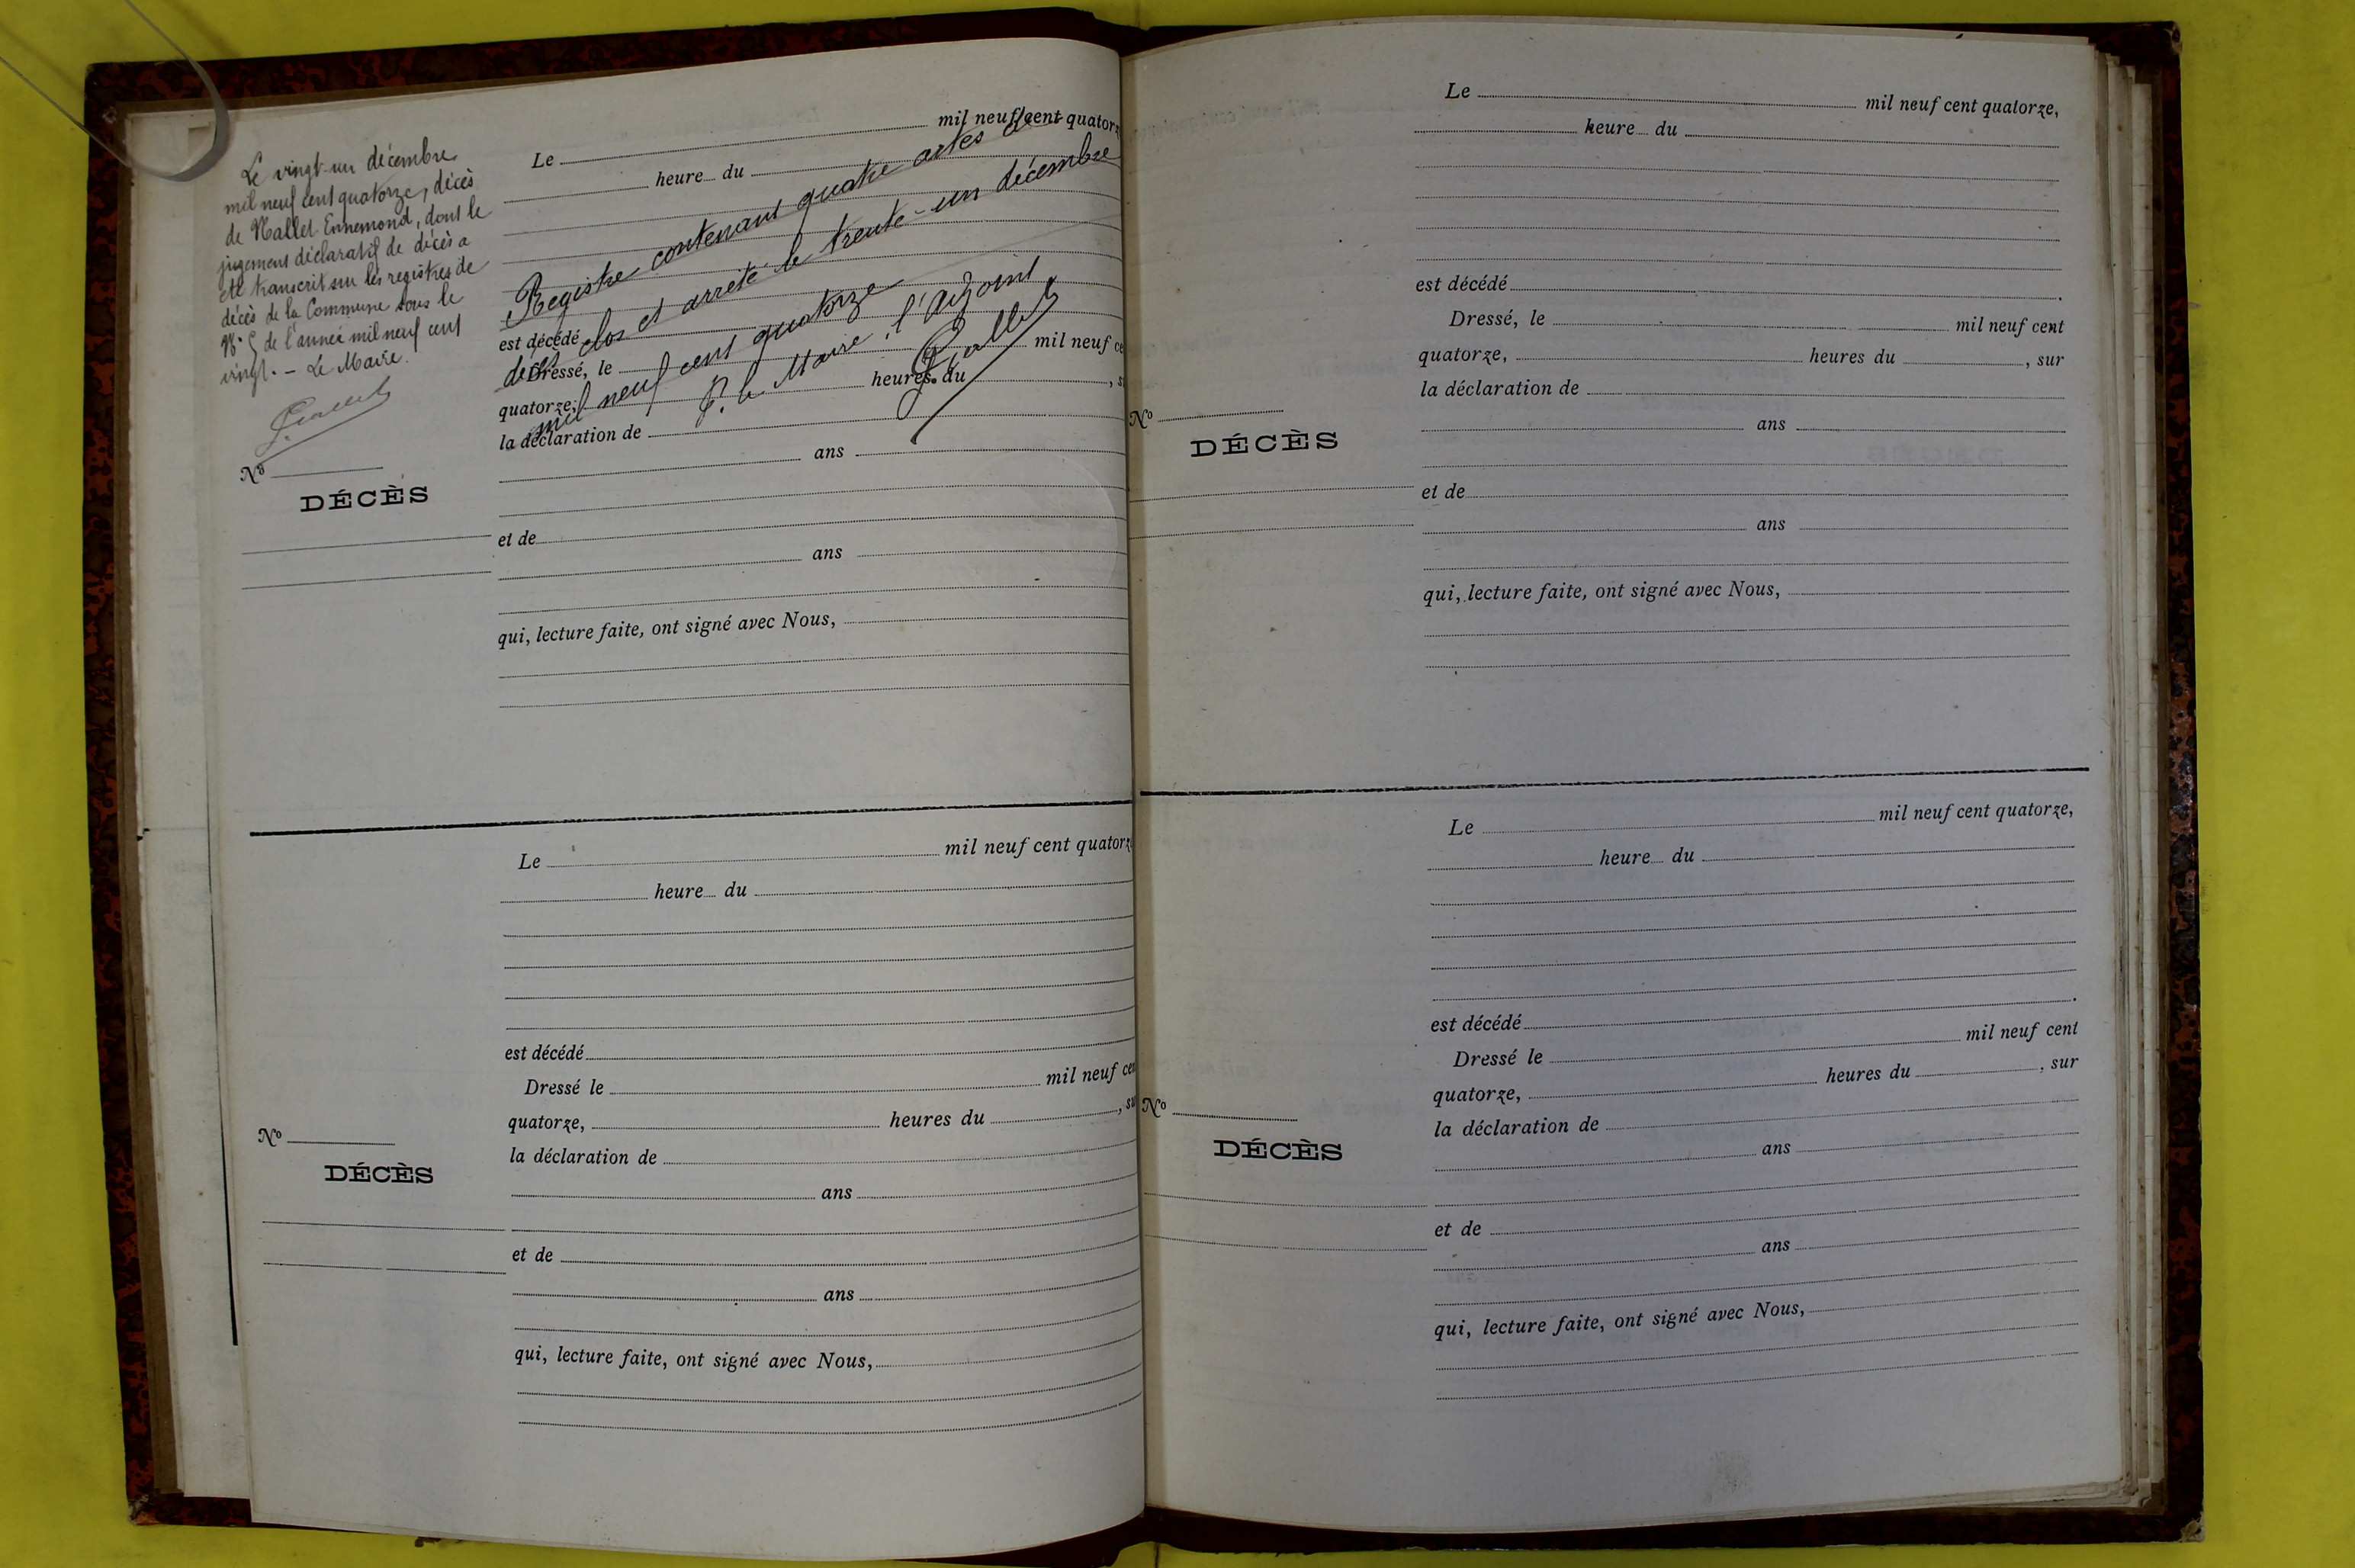 Le vingt-un décembre
mil neuf cent quatorze, décès
de Mallet Ennemond, dont le
jugement déclaratif de décès a
été transcrit sur les registres de
décès de la Commune sous le
N° 5 de l'année mil neuf cent
vingt. - Le Maire.
N°
DÉCÈS
Le mil neuf cent quatorz
heure du
Registre contenant quatre actes de
décès clos et arrêté le trente-un décembre
mil neuf cent quatorze
P. le Maire: l'Adjoint
est décédé
Dressé, le mil neuf ce
quatorze, heures du , s
la déclaration de
ans
et de
ans
qui, lecture faite, ont signé avec Nous,
N°
DÉCÈS
Le mil neuf cent quatorz
heure du
est décédé
Dressé le mil neuf cen
quatorze, heures du , su
la déclaration de
ans
et de
ans
qui, lecture faite, ont signé avec Nous,
N°
DÉCÈS
Le mil neuf cent quatorze,
heure du
est décédé .
Dressé, le mil neuf cent
quatorze, heures du , sur
la déclaration de
ans
et de
ans
qui, lecture faite, ont signé avec Nous,
N°
DÉCÈS
Le mil neuf cent quatorze,
heure du
est décédé .
Dressé le mil neuf cent
quatorze, heures du , sur
la déclaration de
ans
et de
ans
qui, lecture faite, ont signé avec Nous,